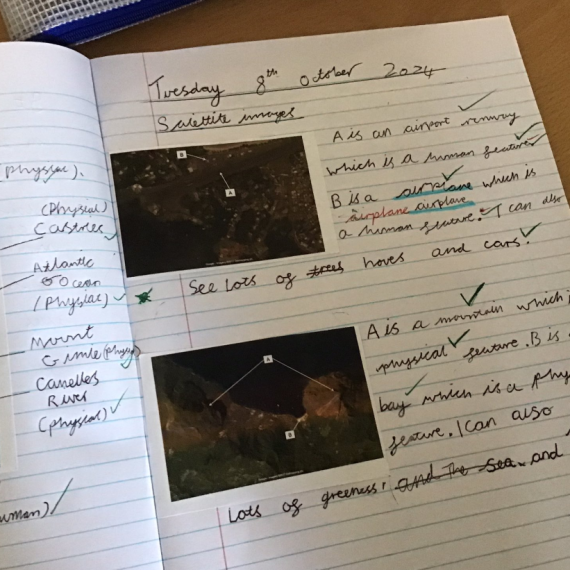 (Physiac).
(Physical)
Castries
Atlantic
Ocean
(Physiac)
Mount
Gimie (Physi
Canelles
River
(physical)
uman)
Tuesday 8th October 2024
Satellite images
B
A
A is an airport runway
which is a human feature
B is a airplane which is
airplane airplane
a human feature. I can also
See Lots of trees hoves and cars.
A
B
A is a mountain which i
physical feature. B is
bay which is a phy
feature. I can also
Lots of greeness, and the sea. and